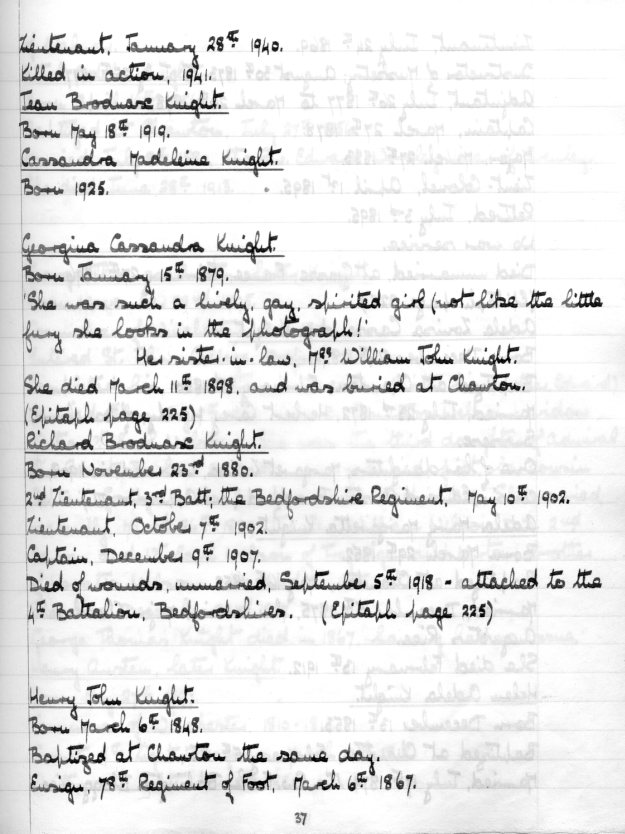 Lieutenant, January 28th 1940.
Killed in action, 1941.
Jean Brodnax Knight.
Born May 18th 1919.
Cassandra Madeleina Knight.
Born 1925.
Georgina Cassandra Knight.
Born January 15th 1879.
'She was such a lively, gay, spirited girl (not like the little
fury she looks in the photograph!'
Her sister-in-law, Mrs William John Knight.
She died March 11th 1898, and was buried at Chawton.
(Epitaph page 225)
Richard Brodnax Knight.
Born November 23rd 1880.
2nd Lieutenant, 3rd Batt, the Bedfordshire Regiment, May 10th 1902.
Lieutenant, October 7th 1902.
Captain, December 9th 1907.
Died of wounds, unmarried, September 5th 1918 - attached to the
4th Battalion, Bedfordshires. (Epitaph page 225)
Henry John Knight.
Born March 6th 1848.
Baptized at Chawton the same day.
Ensign, 78th Regiment of Foot, March 6th 1867.
37